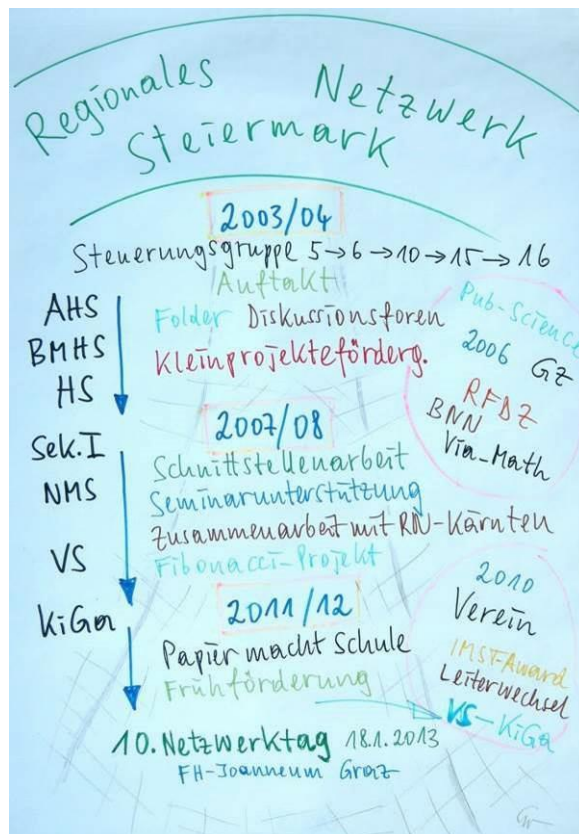 Regionales Netzwerk
Steiermark
2003/04
Steuerungsgruppe 5→6→10→15→16
Auftakt
AHS
BMHS
HS
Folder Diskussionsforen
Kleinprojekteförderg.
Pub-Science
2006 GZ
RFDZ
BNN
Via-Math
2007/08
Sek.I
NMS
VS
Schnittstellenarbeit
Seminarunterstützung
Zusammenarbeit mit RN-Kärnten
Fibonacci-Projekt
KiGa
2011/12
Papier macht Schule
Frühförderung
2010
Verein
IMST-Award
Leiterwechsel
VS-KiGa
10. Netzwerktag 18.1.2013
FH-Joanneum Graz